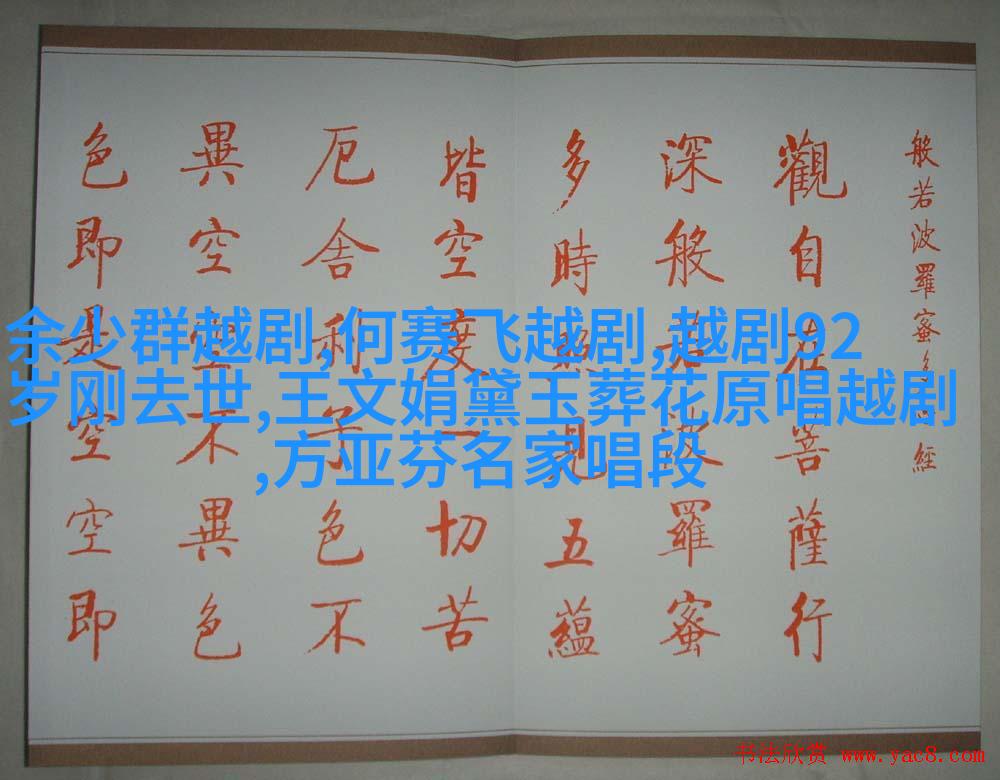 般若波羅蜜多心經
觀自在菩薩行
深般若波羅蜜
多時照見五蘊
皆空度一切苦
厄舍利子色不
異空空不異色
色即是空空即
余少群越剧,何赛飞越剧,越剧92
岁刚去世,王文娟黛玉葬花原唱越剧
,方亚芬名家唱段
书法欣赏 www.yac8.com